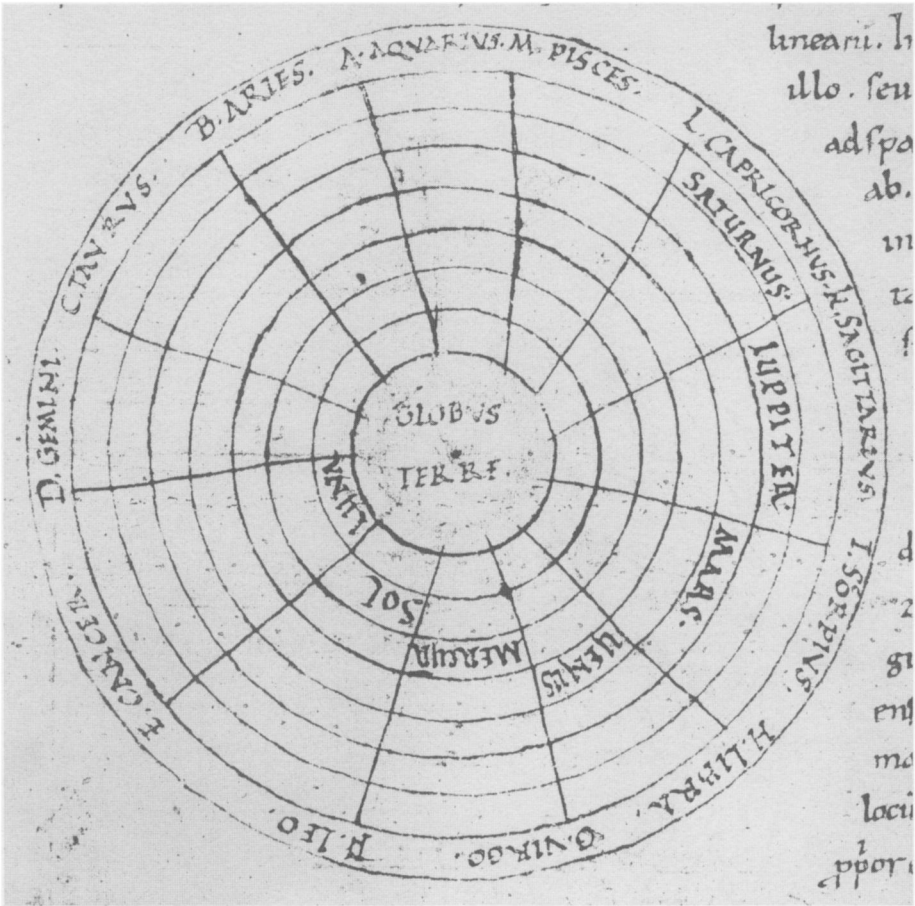 A. AQVARIVS. M. PISCES.
L. CAPRICORHVS. K. SAGITTARIVS
I. SCORPIVS.
H. LIBRA.
G. VIRGO.
F. LEO.
E. CANCER.
D. GEMINI.
C. TAVRVS.
B. ARIES.
SATURNUS.
IUPPITER
MARS.
UENUS
MERCUR
SOL
LUNA
GLOBVS
TERRE.
linearii.
illo. seu
ad spa
ab.
in
ta
d
2
gu
ent
ma
locu